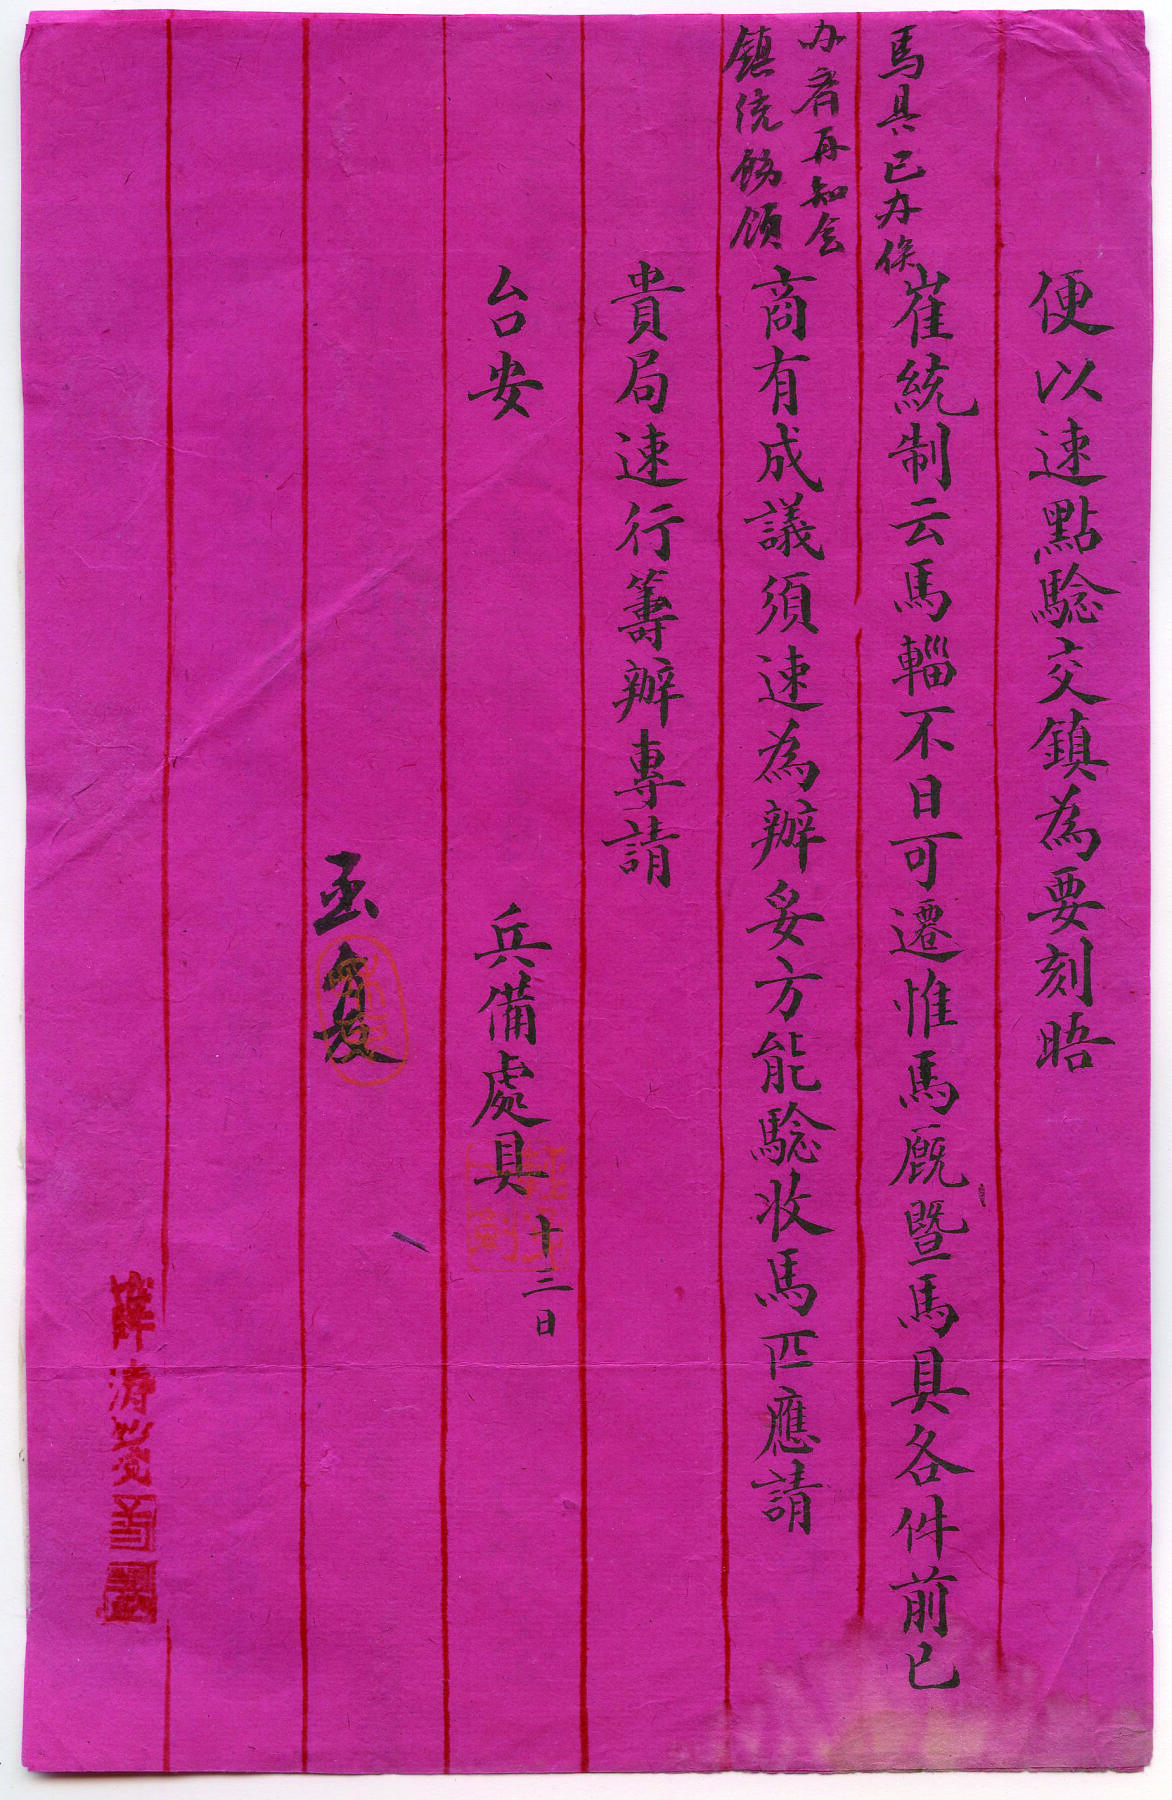 便以速點驗交鎮為要刻晤
崔統制云馬輜不日可遷惟馬廄暨馬具各件前已
商有成議須速為辦妥方能驗收馬匹應請
貴局速行籌辦專請
台安
兵備處具
十三日
馬具已办俟
办齐再知会
鎮统飭领
亟复
薛濤